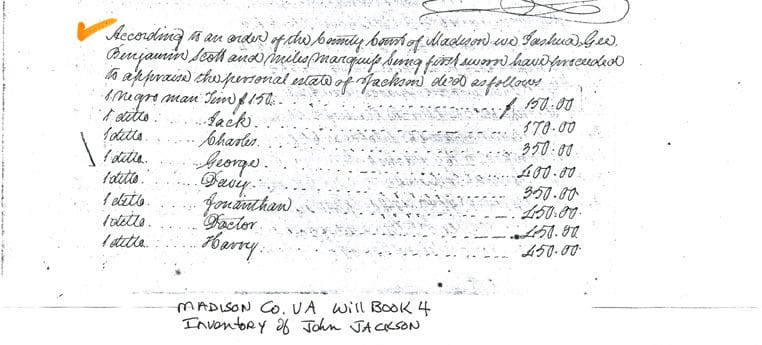 According to an order of the County Court of Madison we Jashua Gee,
Benjamin Scott and miles marquess being first sworn have proceeded
to appraise the personal estate of Jackson dec'd as follows
1 negro man Tim $150. $ 150.00
1 ditto Jack 170.00
1 ditto Charles 350.00
1 ditto George 400.00
1 ditto Davy 350.00
1 ditto Jonainthan 450.00
1 ditto Doctor 450.00
1 ditto Harry 450.00
MADISON CO. VA Will BOOK 4
INVENTORY of John JACKSON